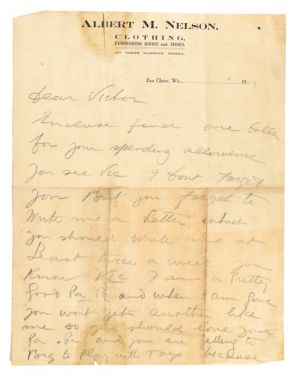 ALBERT M. NELSON,
CLOTHING,
FURNISHING GOODS and SHOES.
Eau Claire, Wis.,
Dear Victor
Enclose find one Dollar
for your spending allowence
You see Vic I Dont Forget
you But you forget to
Write me a Letter which
you should write me at
Least twice a week you
Know Vic I am a Pretty
Good Pa Pa and when I am Gone
you wont get another like
me so you should love your
Pa Pa and you are getting to
Big to Play with Toys because